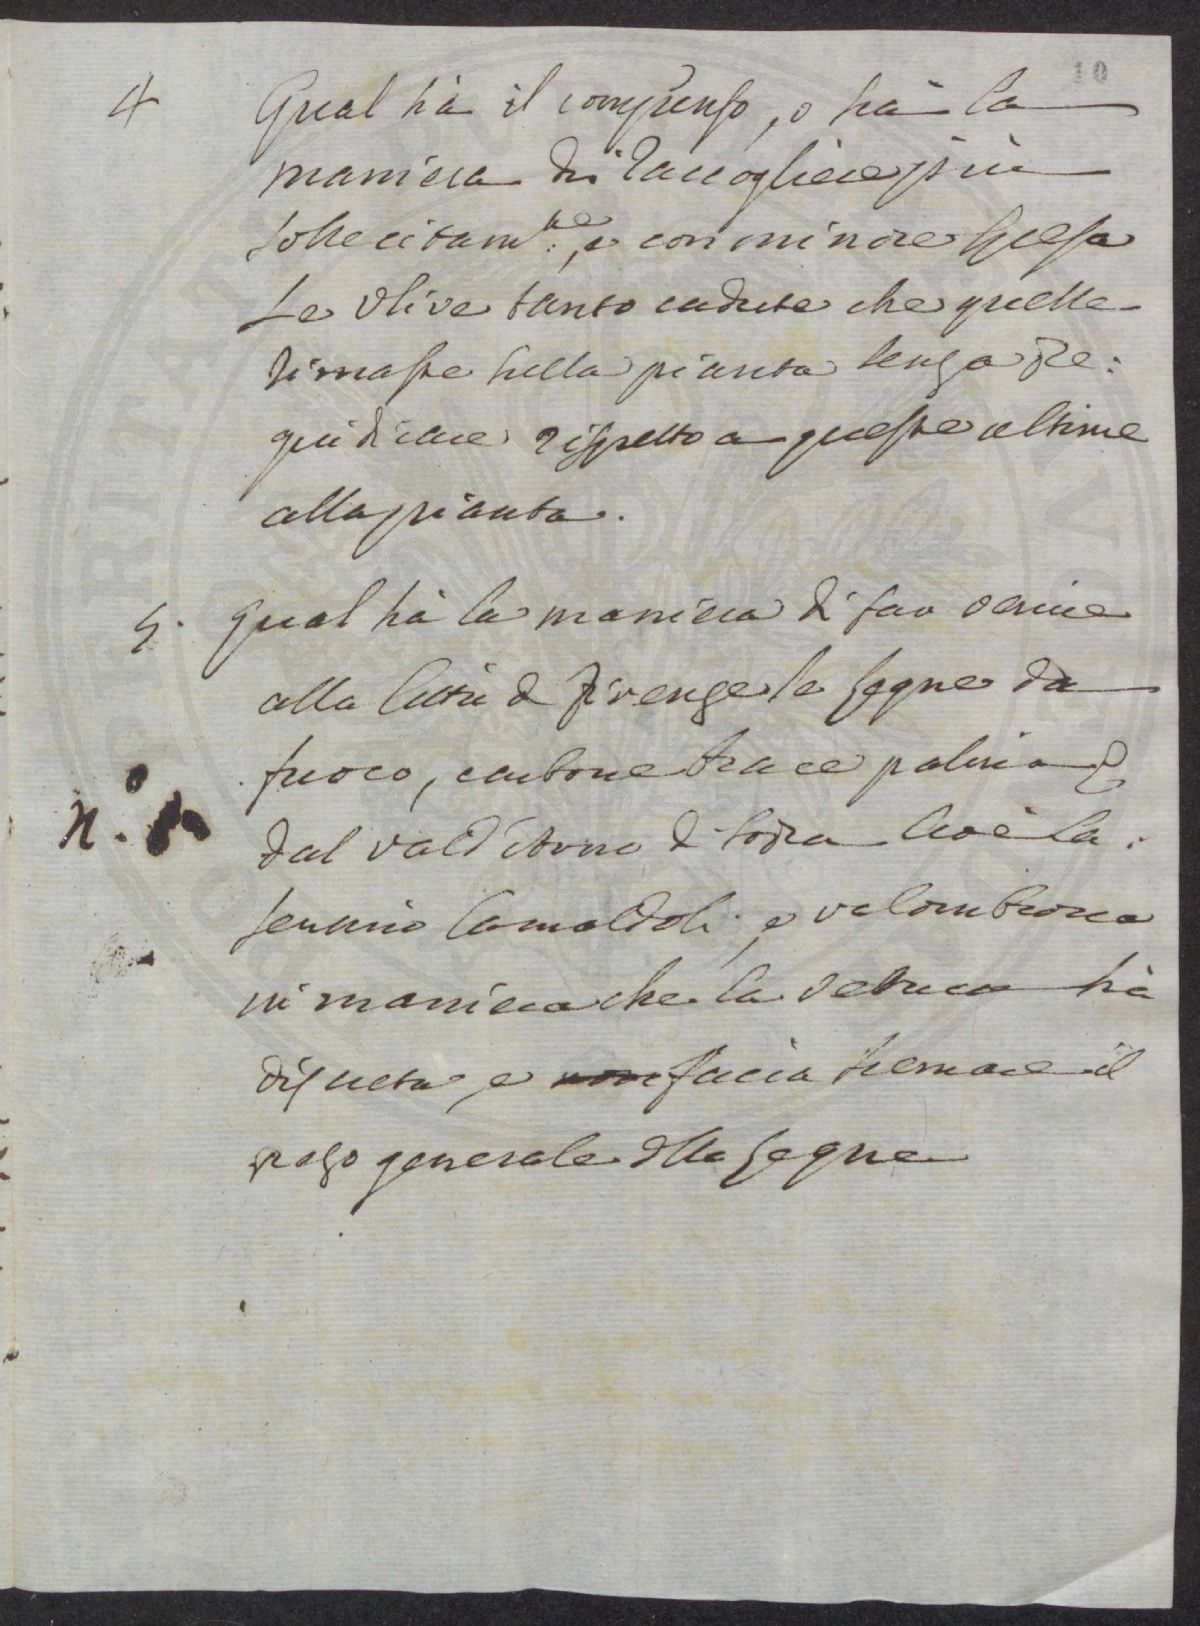 10
4 Qual sia il compenso, o sia la
maniera di raccogliere più
sollecitam.te, e con minore spesa
Le Olive tanto cadute che quelle
rimaste sulla pianta senza pre:
giudicare rispetto a queste ultime
alla pianta.
5. Qual sia la maniera di far venire
alla Città di Firenze le legne da
fuoco, carbone brace palina
dal Valdarno di sopra cioè la
Camaldoli, e Valombrosa
in maniera che la vettura sia
discreta, e non facia scemare il
generale della legne
n.°